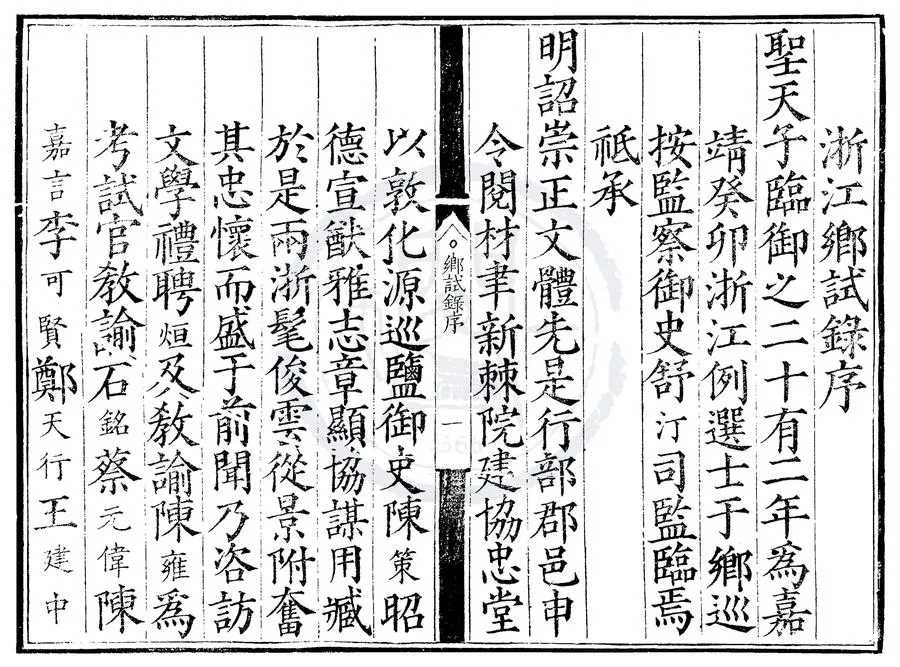 浙江鄉試錄序
聖天子臨御之二十有二年為嘉
靖癸卯浙江例選士于鄉巡
按監察御史舒汀司監臨焉
祗承
明詔崇正文體先是行部郡邑申
令閱材聿新棘院建協忠堂
鄉試錄序 一
以敦化源巡鹽御史陳策昭
德宣猷雅志章顯協謀用臧
於是兩浙髦俊雲從景附奮
其忠懷而盛于前聞乃咨訪
文學禮聘烜及教諭陳雍為
考試官教諭石銘蔡元偉陳
嘉言李可賢鄭天行王建中